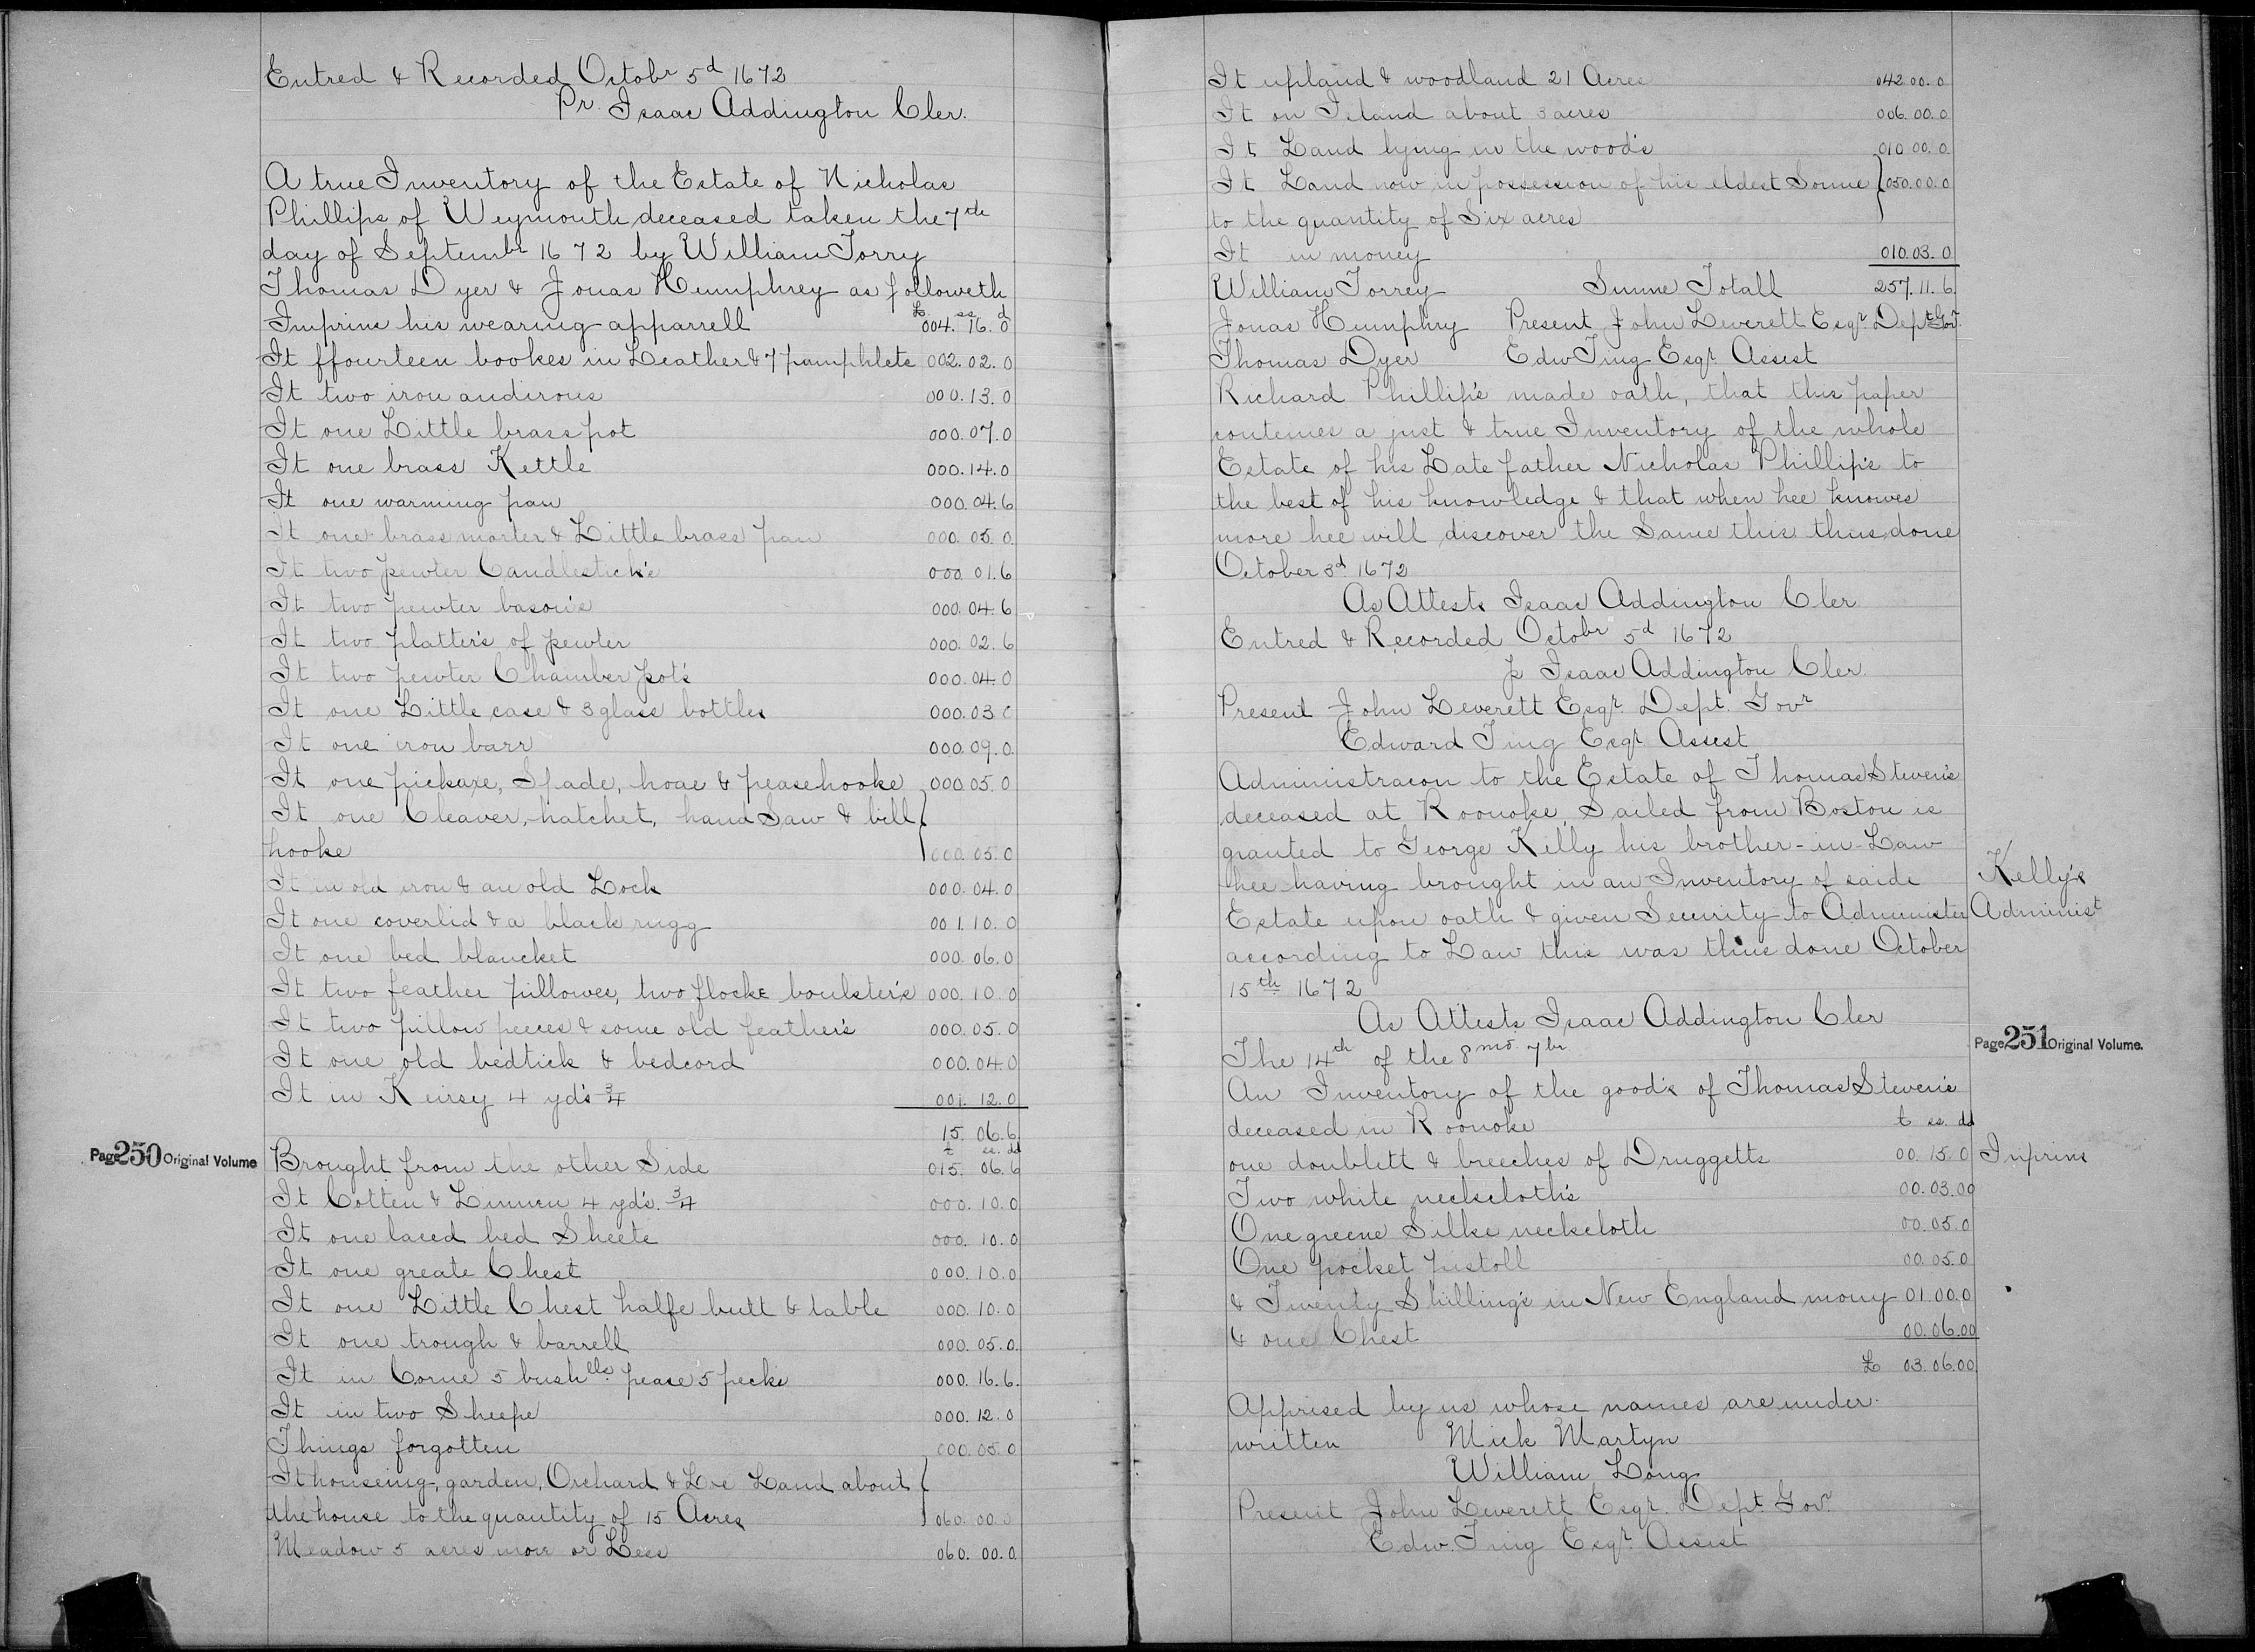 Entred & Recorded Octobr 5d 1672
Pr. Isaac Addington Cler.
A true Inventory of the Estate of Nicholas
Phillips of Weymouth deceased taken the 7th
day of Septembr 1672 by William Torry
Thomas Dyer & Jonas Humphrey as followeth
£ ss d
Imprins his wearing apparrell 004. 16. 0
It ffourteen bookes in Leather & 7 pamphlets 002. 02. 0
It two iron andirons 000. 13. 0
It one Little brass pot 000. 07. 0
It one brass Kettle 000. 14. 0
It one warming pan 000. 04. 6
It one brass morter & Little brass pan 000. 05. 0
It two pewter Candlestick's 000. 01. 6
It two pewter bason's 000. 04. 6
It two platter's of pewter 000. 02. 6
It two pewter Chamber pot's 000. 04. 0
It one Little case & 3 glass bottles 000. 03 0
It one iron barr 000. 09. 0
It one pickaxe, Spade, hoae & peasehooke 000. 05. 0
It one Cleaver, hatchet, hand Saw & bill
hooke 000. 05. 0
It in old iron & an old Lock 000. 04. 0
It one coverlid & a black rugg 001. 10. 0
It one bed blancket 000. 06. 0
It two feather pillowes, two flocke boulster's 000. 10. 0
It two pillow peeces & some old feather's 000. 05. 0
It one old bedtick & bedcord 000. 04. 0
It in Keirsy 4 yd's 3/4 001. 12. 0
15. 06. 6
£ ss. dd
Page 250 Original Volume
Brought from the other Side 015. 06. 6
It Cotten & Linnen 4 yd's. 3/4 000. 10. 0
It one laced bed Sheete 000. 10. 0
It one greate Chest 000. 10. 0
It one Little Chest halfe butt & table 000. 10. 0
It one trough & barrell 000. 05. 0
It in Corne 5 bushlls pease 5 pecks 000. 16. 6.
It in two Sheepe 000. 12. 0
Things forgotten 000. 05. 0
It houseing, garden, Orchard & Land about
the house to the quantity of 15 Acres 060. 00. 0
Meadow 5 acres more or Less 060. 00. 0
It upland & woodland 21 Acres 042 00. 0
It on Island about 3 acres 006. 00. 0
It Land lying in the wood's 010 00. 0
It Land now in possession of his eldest Sonne 050. 00. 0
to the quantity of Six acres
It in money 010. 03. 0
William Torrey Summe Totall 257. 11. 6.
Jonas Humphry Present John Leverett Esqr. Dept Govr.
Thomas Dyer Edw Ting Esqr. Assist
Richard Phillip's made oath, that this paper
conteines a just & true Inventory of the whole
Estate of his Late father Nicholas Phillip's to
the best of his knowledge & that when hee knowes
more hee will discover the Same this thus done
October 3d 1672
As Attests Isaac Addington Cler
Entred & Recorded Octobr 5d 1672
p Isaac Addington Cler.
Present John Leverett Esqr. Dept. Govr
Edward Ting Esqr Assist
Administracon to the Estate of Thomas Steven's
deceased at Roonoke, Sailed from Boston is
granted to George Kelly his brother-in-Law
hee having brought in an Inventory of saide
Kelly's
Estate upon oath & given Security to Administer
Administ
according to Law this was thus done October
15th 1672
As Attests Isaac Addington Cler
Page 251 Original Volume.
The 14th of the 8mo. 7br.
An Inventory of the good's of Thomas Steven's
deceased in Roonoke £ ss. dd
one doublett & breeches of Druggetts 00. 15. 0
Inprins
Two white neckcloth's 00. 03. 00
One greene Silke neckcloth 00. 05. 0
One pocket pistoll 00. 05. 0
& Twenty Shilling's in New England mony 01 00. 0
& one Chest 00. 06. 00
£ 03. 06. 00
Apprised by us whose names are under-
written Mick Martyn
William Long
Present John Leverett Esqr. Dept. Govr.
Edw. Ting Esqr. Assist